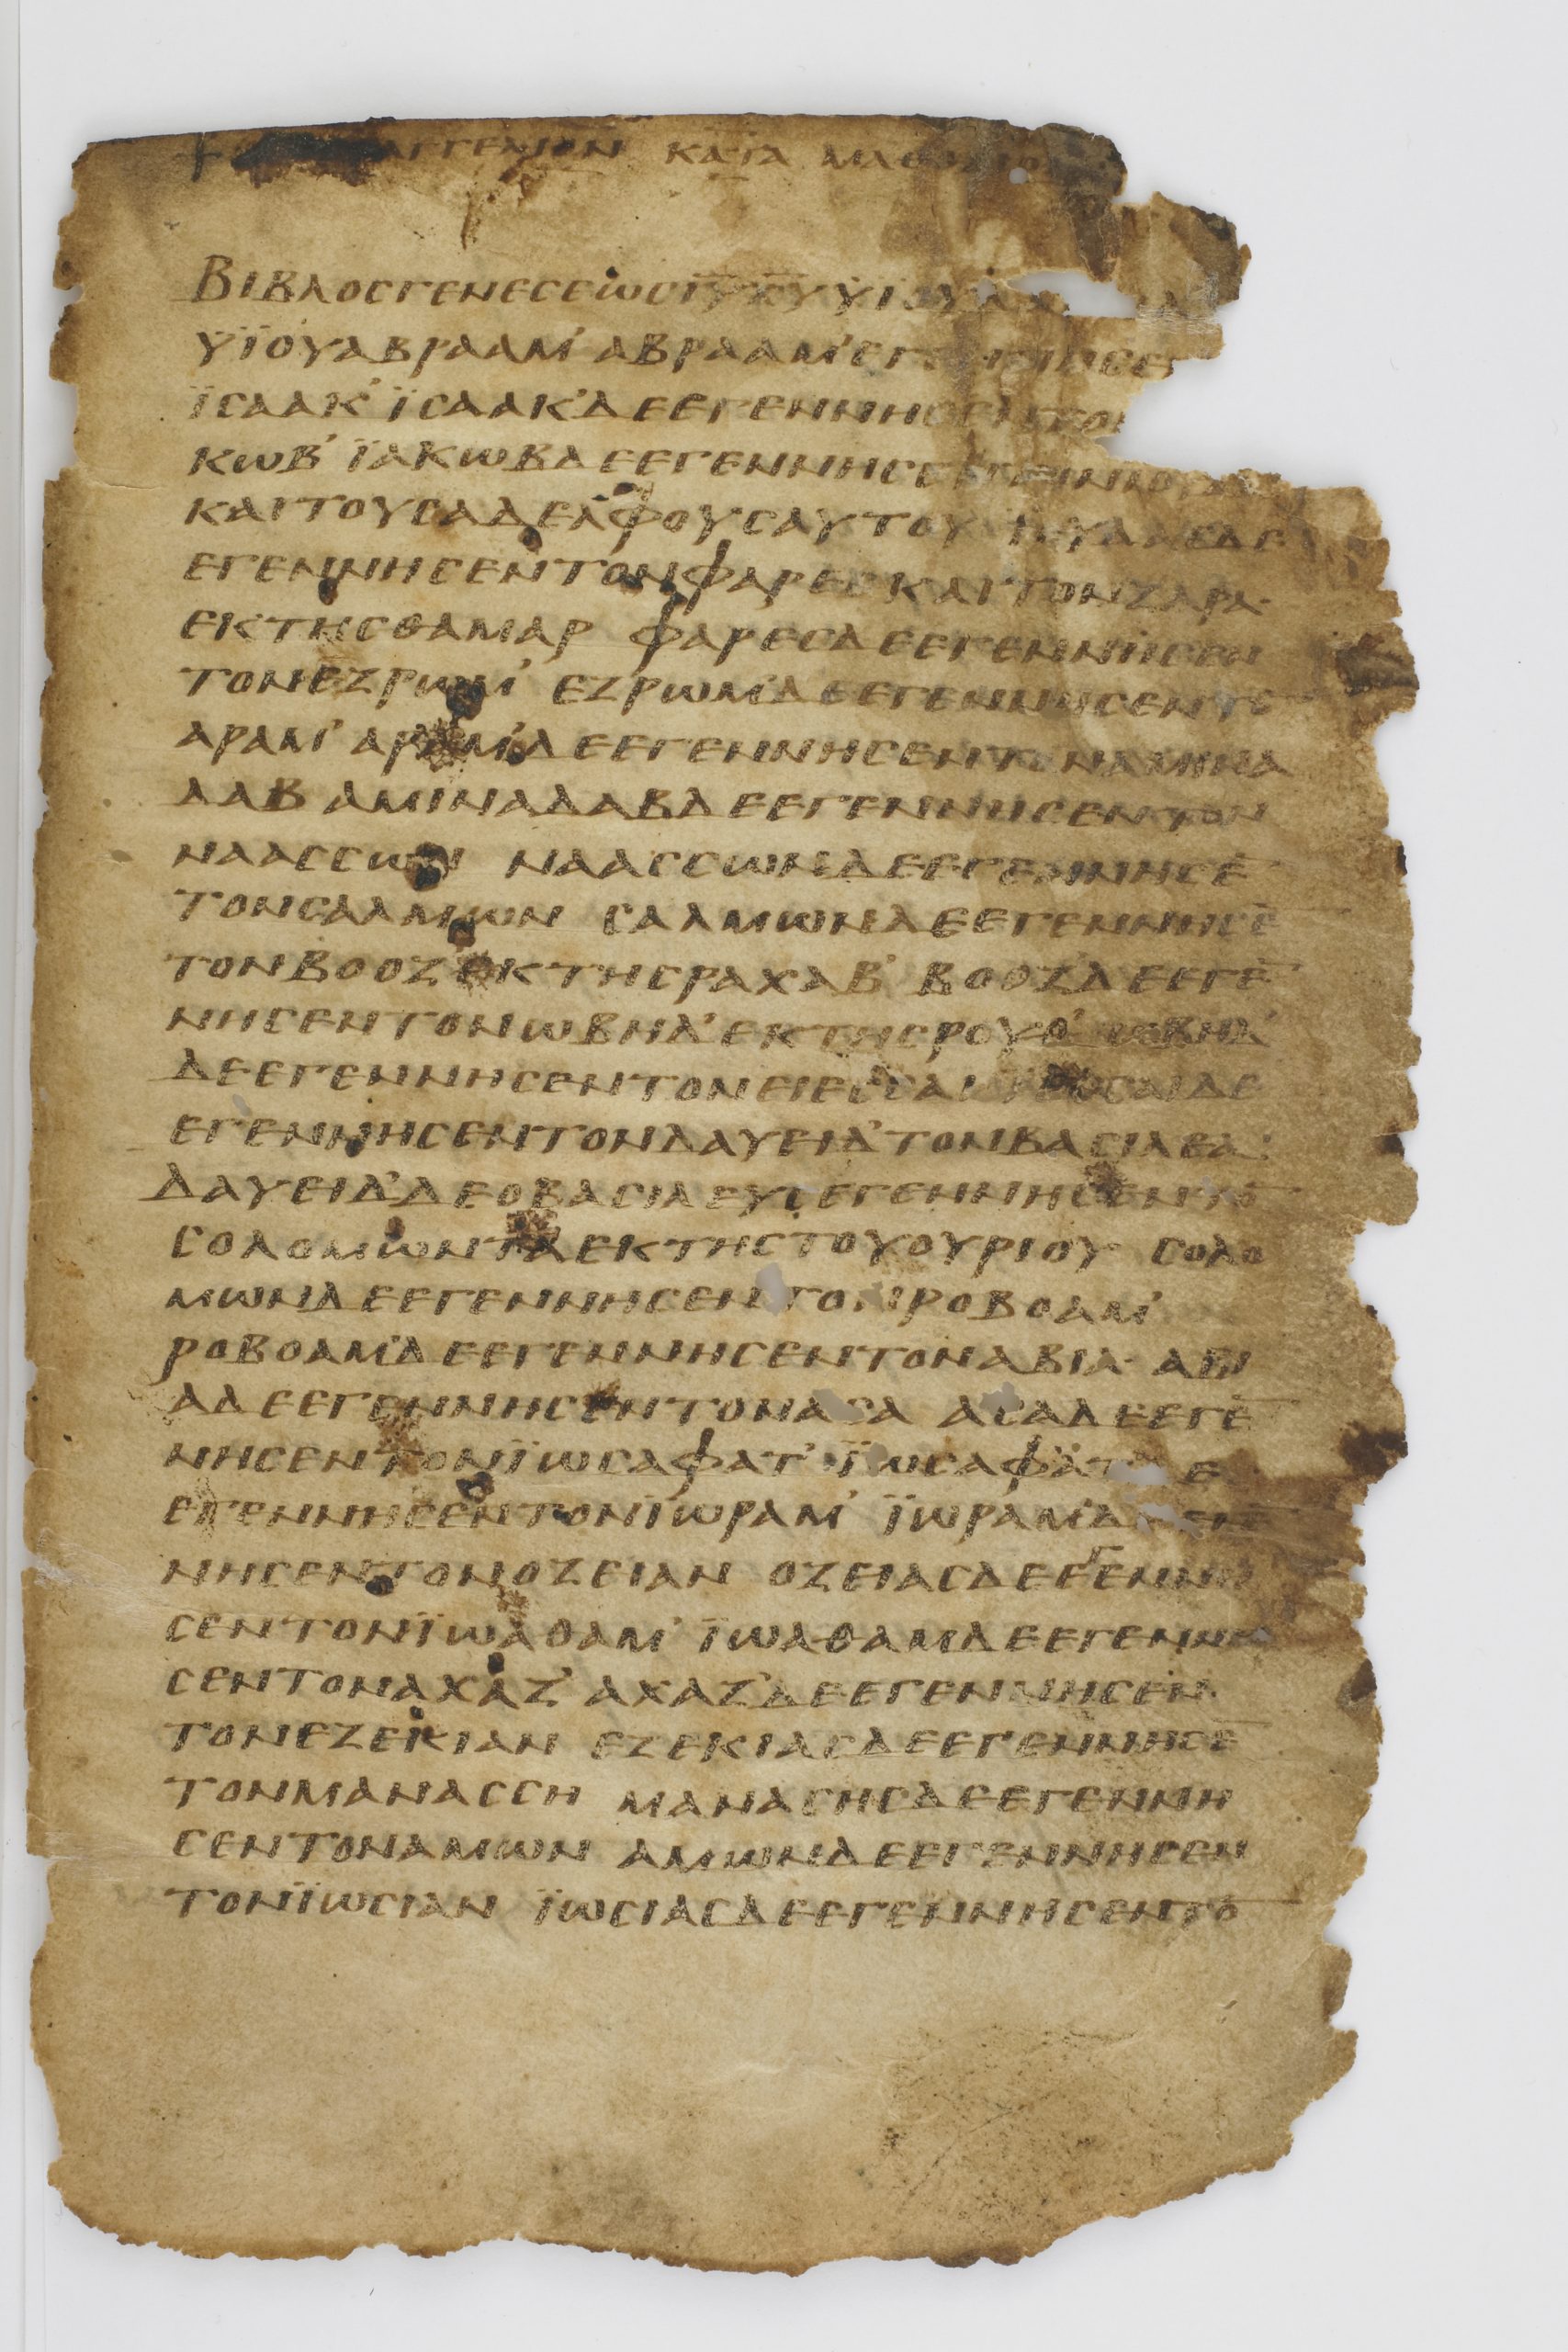 ΑΓΓΕΛΙΟΝ ΚΑΤΑ ΜΑΘ
ΒΙΒΛΟϹΓΕΝΕϹΕωϹΙΥΧΥΥΙΟΥΔΑ
ΥΪΟΥΑΒΡΑΑΜ' ΑΒΡΑΑΜ'ΕΓΕ
ΪϹΑΑΚ' ΪϹΑΑΚ'ΔΕΕΓΕΝΝΗϹΕΝ
ΚωΒ' ΪΑΚωΒΔΕΕΓΕΝΝΗϹΕΝΤΟΝΙΟΥΔΑ
ΚΑΙΤΟΥϹΑΔΕΛΦΟΥϹΑΥΤΟΥ ΙΟΥΔΑϹΔΕ
ΕΓΕΝΝΗϹΕΝΤΟΝΦΑΡΕϹΚΑΙΤΟΝΖΑΡΑ·
ΕΚΤΗϹΘΑΜΑΡ ΦΑΡΕϹΔΕΕΓΕΝΝΗϹΕΝ
ΤΟΝΕΖΡωΜ' ΕΖΡωΜ'ΔΕΕΓΕΝΝΗϹΕΝΤΟ̅
ΑΡΑΜ' ΑΡΑΜ'ΔΕΕΓΕΝΝΗϹΕΝΤΟΝΑΜΙΝΑ
ΔΑΒ ΑΜΙΝΑΔΑΒΔΕΕΓΕΝΝΗϹΕΝΤΟΝ
ΝΑΑϹϹωΝ ΝΑΑϹϹωΝΔΕΕΓΕΝΝΗϹΕ̅
ΤΟΝϹΑΛΜωΝ ϹΑΛΜωΝΔΕΕΓΕΝΝΗϹΕ̅
ΤΟΝΒΟΟΖ'ΕΚΤΗϹΡΑΧΑΒ' ΒΟΟΖ'ΔΕΕΓΕ̅
ΝΗϹΕΝΤΟΝωΒΗΔ'ΕΚΤΗϹΡΟΥΘ' ωΒΗΔ'
ΔΕΕΓΕΝΝΗϹΕΝΤΟΝΙΕϹϹΑΙ ΙΕϹϹΑΙΔΕ
ΕΓΕΝΝΗϹΕΝΤΟΝΔΑΥΕΙΔ'ΤΟΝΒΑϹΙΛΕΑ·
ΔΑΥΕΙΔ'ΔΕΟΒΑϹΙΛΕΥϹΕΓΕΝΝΗϹΕΝΤΟ̅
ϹΟΛΟΜωΝΤΑΕΚΤΗϹΤΟΥΟΥΡΙΟΥ ϹΟΛΟ
ΜωΝΔΕΕΓΕΝΝΗϹΕΝΤΟΝΡΟΒΟΑΜ'
ΡΟΒΟΑΜ'ΔΕΕΓΕΝΝΗϹΕΝΤΟΝΑΒΙΑ· ΑΒΙ
ΑΔΕΕΓΕΝΝΗϹΕΝΤΟΝΑϹΑ ΑϹΑΔΕΕΓΕ̅
ΝΗϹΕΝΤΟΝΪωϹΑΦΑΤ' ΪωϹΑΦΑΤΔΕ
ΕΓΕΝΝΗϹΕΝΤΟΝΪωΡΑΜ' ΪωΡΑΜ'ΔΕΕΓΕ̅
ΝΗϹΕΝΤΟΝΟΖΕΙΑΝ ΟΖΕΙΑϹΔΕΕΓΕΝΝΗ
ϹΕΝΤΟΝΪωΑΘΑΜ' ΪωΑΘΑΜΔΕΕΓΕΝΝΗ
ϹΕΝΤΟΝΑΧΑΖ' ΑΧΑΖ'ΔΕΕΓΕΝΝΗϹΕΝ
ΤΟΝΕΖΕΚΙΑΝ ΕΖΕΚΙΑϹΔΕΕΓΕΝΝΗϹΕ̅
ΤΟΝΜΑΝΑϹϹΗ ΜΑΝΑϹΗϹΔΕΕΓΕΝΝΗ
ϹΕΝΤΟΝΑΜωΝ ΑΜωΝΔΕΕΓΕΝΝΗϹΕΝ
ΤΟΝΪωϹΙΑΝ ΪωϹΙΑϹΔΕΕΓΕΝΝΗϹΕΝΤΟ̅